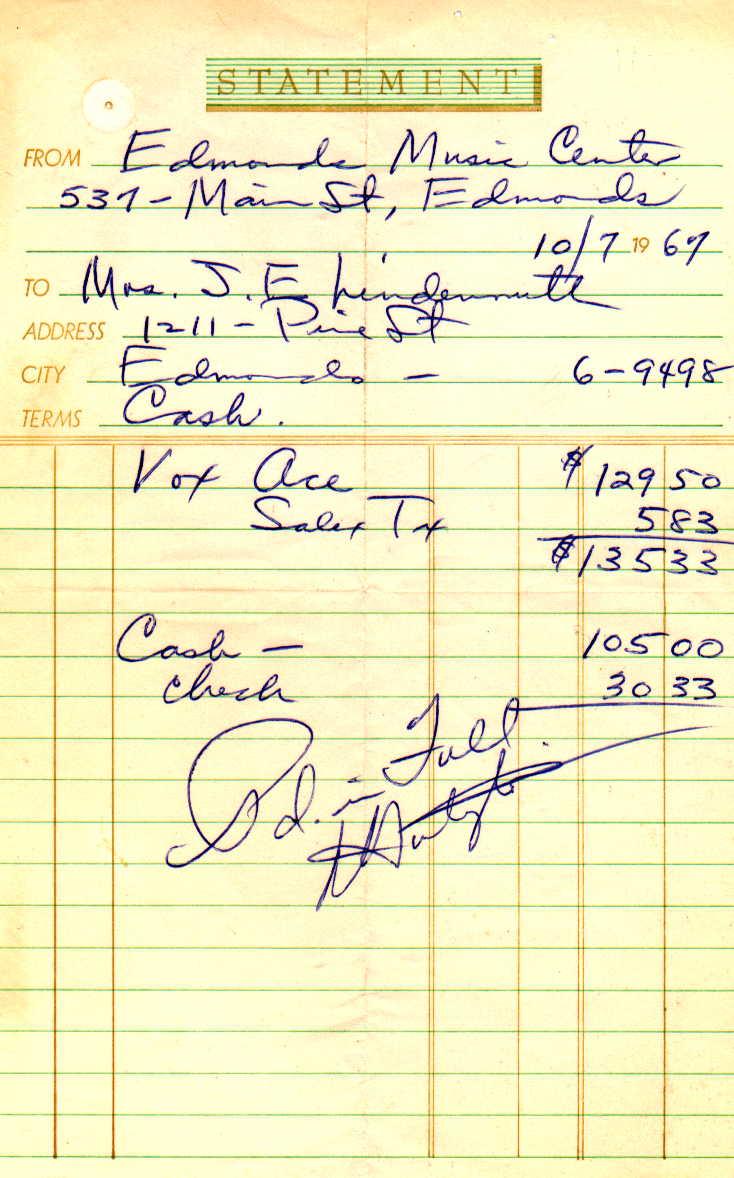 STATEMENT
FROM Edmonds Music Center
537 - Main St, Edmonds
10/7 1967
TO Mrs. J. E. Lindenmuth
ADDRESS 1211 - Pine St
CITY Edmonds - 6-9498
TERMS Cash.
Vox Ace $129 50
Sales Tx 5 83
$135 33
Cash - 105 00
check 30 33
Pd. in Full